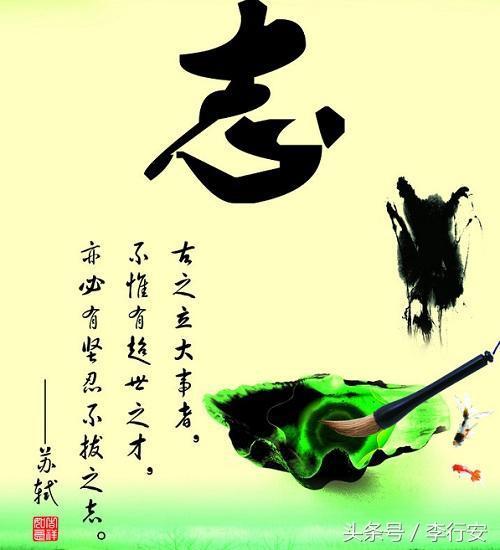 志
古之立大事者，
不惟有超世之才，
亦必有坚忍不拔之志。
——苏轼
头条号 / 李行安